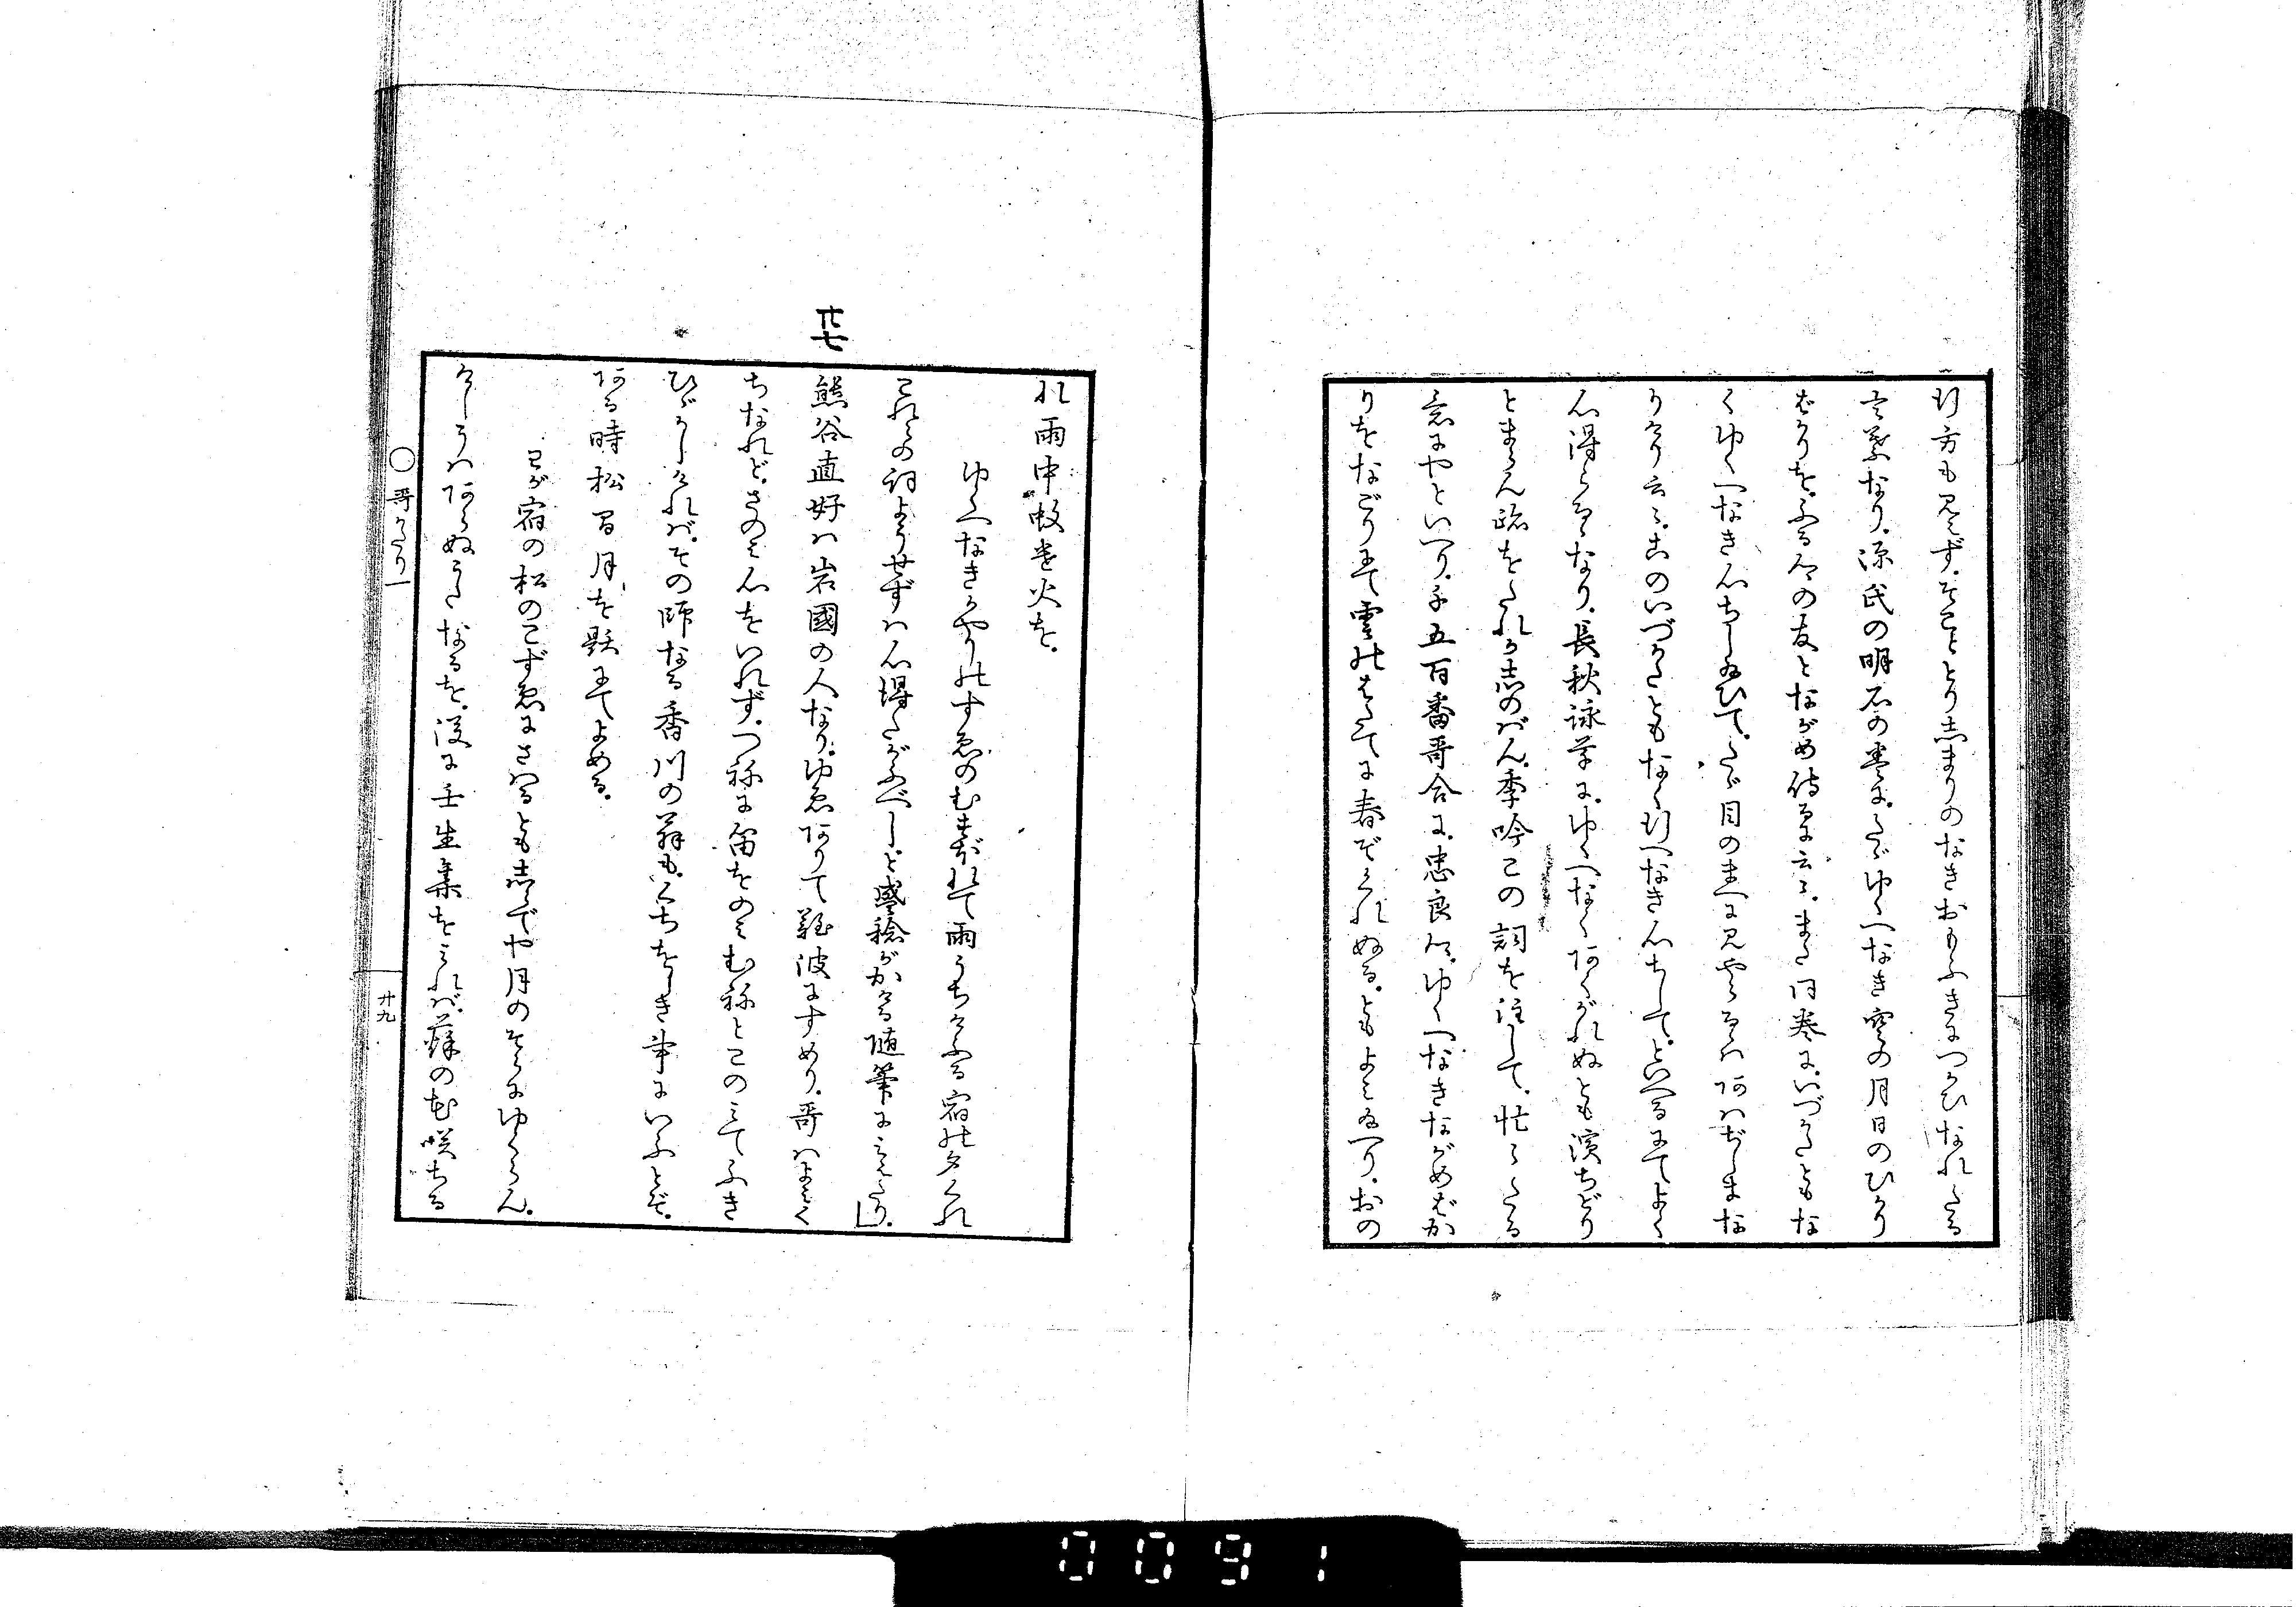 行方も見えず。そこととり志まりのなきおもふきにつかひなれたる
言葉なり。源氏の明石の巻に。たゞゆくへなき空の月日のひかり
ばかりを。ふる人の友とながめ侍るに云々。また同巻に。いづかたともな
くゆくへなき心ちし給ひて。たゞ目のまへに見やらるゝはあはぢしまな
りけり云々。このいづかたともなく行へなき心ちして。といへるにてよく
心得らるゝなり。長秋詠草に。ゆくへなくあくがれぬとも濱ちどり
とまらん跡をたれか志のばん。季吟この詞を注して。忙々たる
意にやといへり。千五百番哥合に。忠良卿。ゆくへなきながめばか
りをなごりにて雲のはたてに春ぞくれぬる。ともよみ給へり。おの
れ雨中蚊遣火を。
ゆくへなきかやりのすゑのむすぼれて雨うちけふる宿の夕くれ
これらの詞よりせずは心得たがふべしと盛稔がかける随筆にみえたり。
廿七
熊谷直好は岩國の人なり。ゆゑありて難波にすめり。哥はよみく
ちなれど。さのみ心をいれず。つねに笛をのみむねとこのみてふき
ひゞかしければ。その師なる香川の翁も。くちをしき事にいふとぞ。
ある時松間月を題にてよめる。
わが宿の松のこずゑにさはるとも志らでや月のそらにゆくらん。
けしうはあらぬうたなるを。後に壬生集をみれば。萩の花咲ちる
〇哥かたり一
廿九
0091